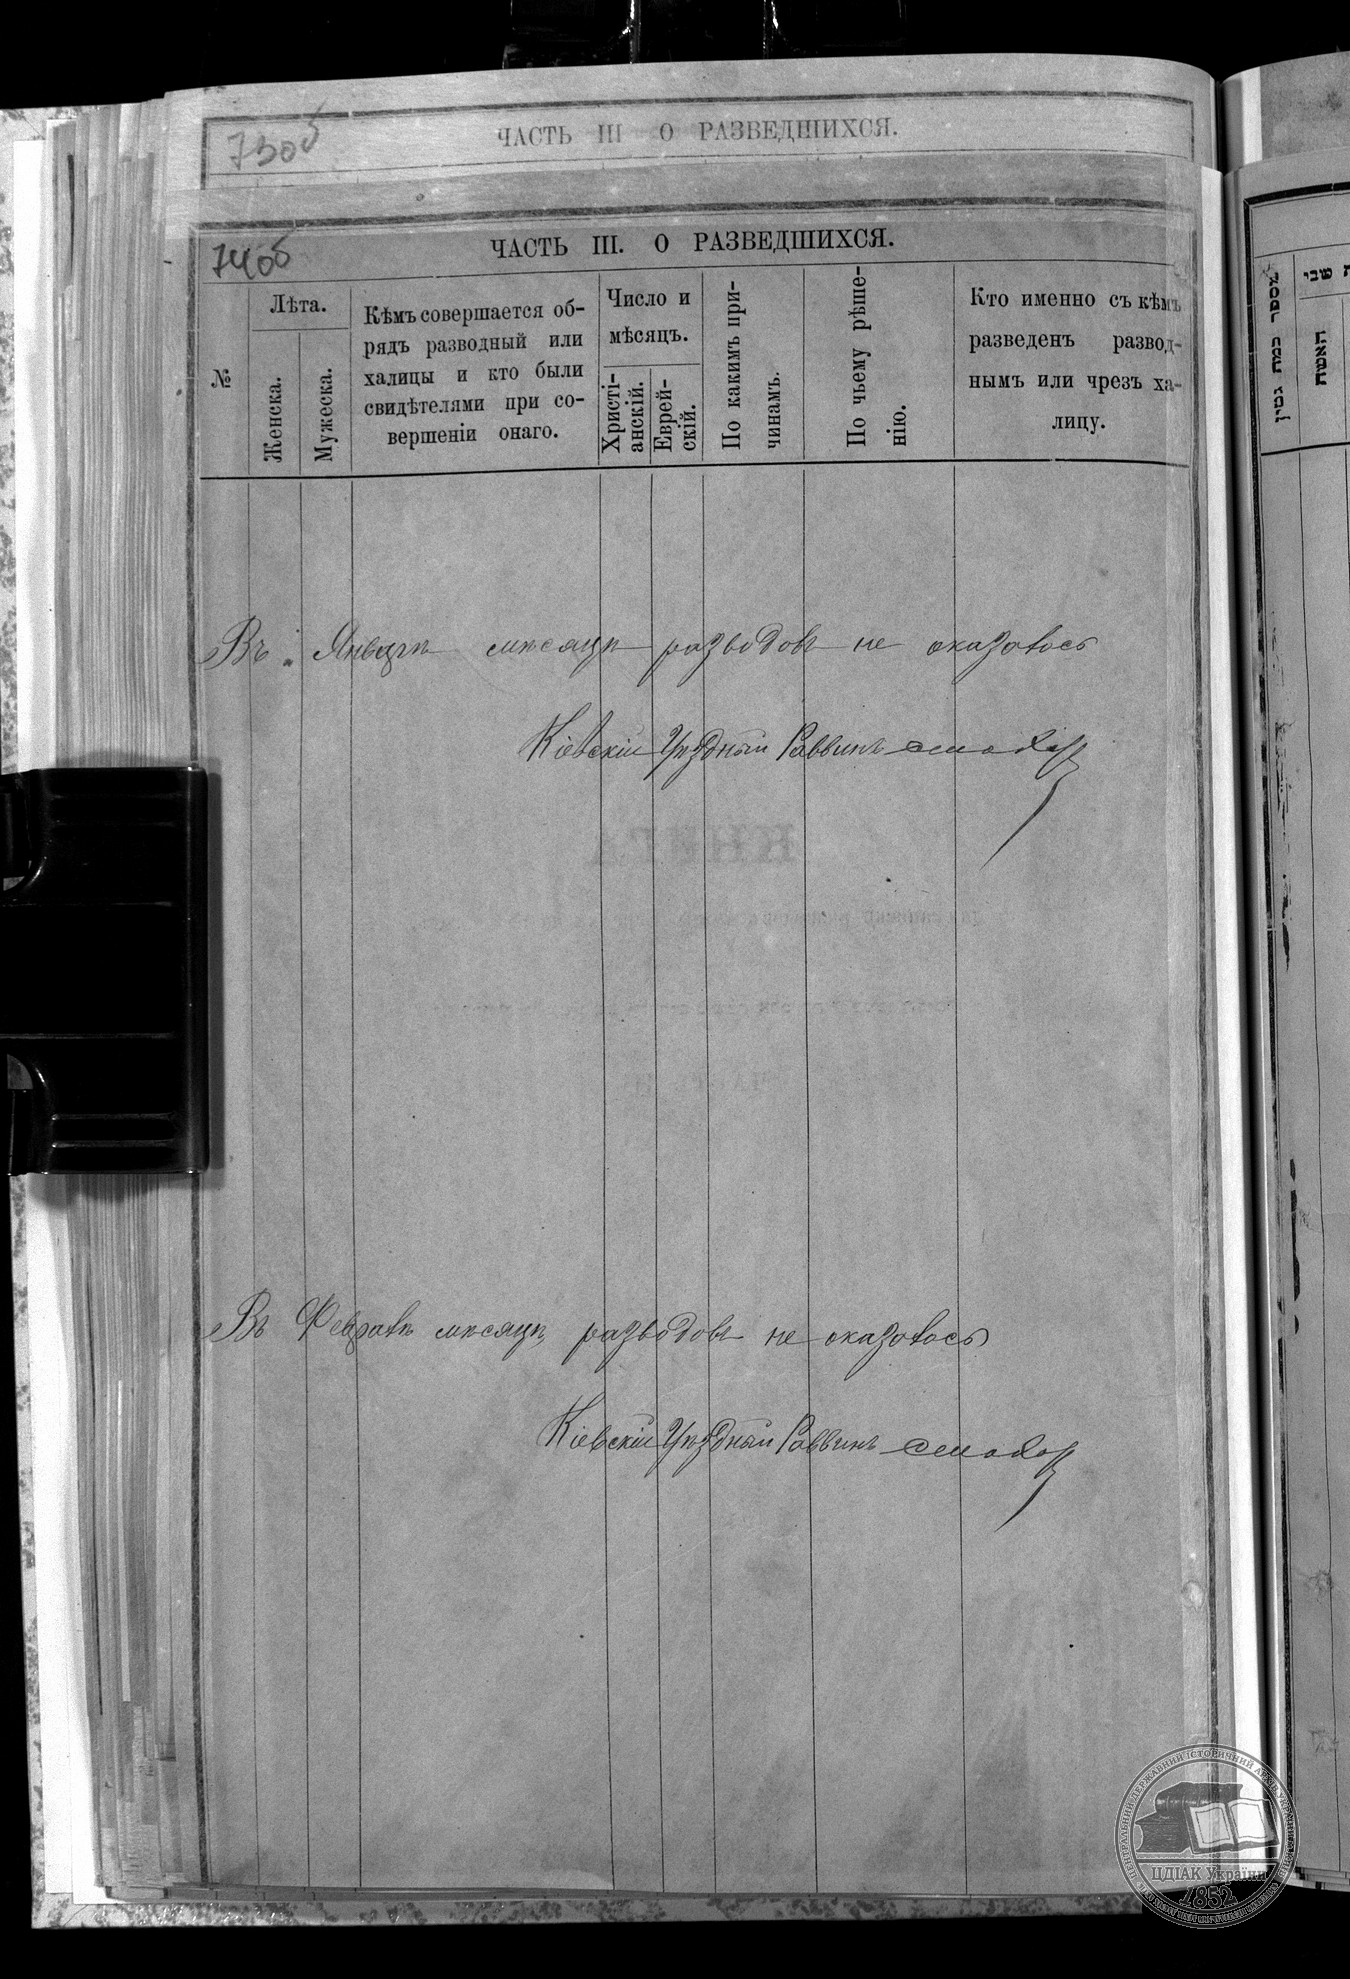 730б
ЧАСТЬ III О РАЗВЕДШИХСЯ.
740б
ЧАСТЬ III. О РАЗВЕДШИХСЯ.
№
Лѣта.
Женска.
Мужеска.
Кѣмъ совершается об-
рядъ разводный или
халицы и кто были
свидѣтелями при со-
вершеніи онаго.
Число и
мѣсяцъ.
Христі-
анскій.
Еврей-
скій.
По какимъ при-
чинамъ.
По чьему рѣше-
нію.
Кто именно съ кѣмъ
разведенъ развод-
нымъ или чрезъ ха-
лицу.
Въ Январѣ мѣсяцѣ разводовъ не оказалось
Кіевскій Уѣздный Раввинъ
КНИГА
Въ Февралѣ мѣсяцѣ разводовъ не оказалось
Кіевскій Уѣздный Раввинъ
מספר כמה גטין
האשה
ЦЕНТРАЛЬНИЙ ДЕРЖАВНИЙ ІСТОРИЧНИЙ АРХІВ УКРАЇНИ
ЦДІАК України
1852